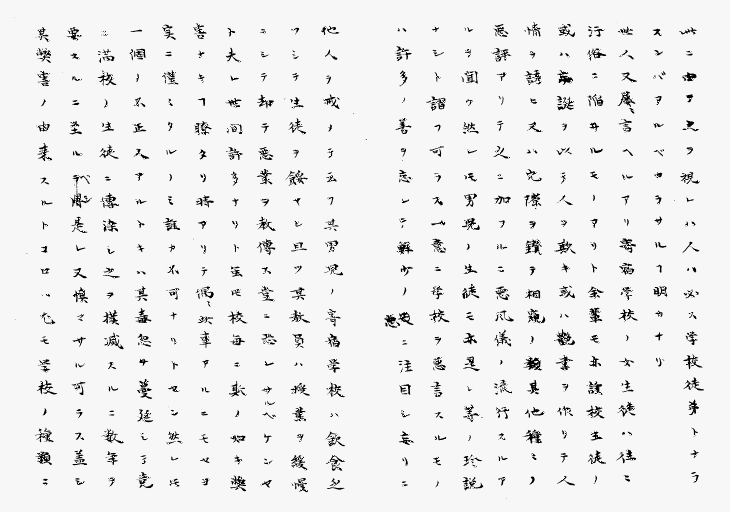 此ニ由テ之ヲ視レハ人ハ必ス学校徒弟トナラ
スンバアルベカラサルヿ明カナリ
世人又屡々言ヘルアリ寄宿学校ノ女生徒ハ往々
行俗ニ陥井ルモノアリト余輩モ亦該校生徒ノ
或ハ誕ヲ以テ人ヲ欺キ或ハ艶書ヲ作リテ人
情ヲ諸ヒ又ハ穴隙ヲ鑽テ相窺ノ類其他種々ノ
悪評アリテ之ニ加フルニ悪風儀ノ流行スルア
ルヲ聞ケ然レモ男児ノ生徒モ亦是レ等ノ珍説
ナシト謂フ可ラス一意ニ学校ヲ悪言スルモノ
ハ許多ノ善ヲ忘レテ解少ノ悪ニ注目シ妄リニ
他人ヲ戒メテ云フ其男児ノ寄宿学校ハ飲食乏
フシテ生徒ヲ餒ヤシ且ツ其教員ハ授業ヲ緩慢
ニシテ却テ悪業ヲ教傳ス豈ニ恐レサルベケンヤ
ト夫レ世間許多ナリト雖モ校毎ニ斯ノ如キ獎
害ナキヿ瞭タリ時アリテ偶々此事アルニモセヨ
実ニ僅ミタルノミ誰カ不可ナリトセン然レモ
一個ノ不正スアルトキハ其毒忽ケ蔓延シテ竟
ニ満校ノ生徒ニ傳染シ之ヲ撲滅スルニ数年ヲ
要スルニ至ルベシ是レ又慎マサル可ラス蓋シ
其獎害ノ由来スルトコロハ尤モ学校ノ種類ニ